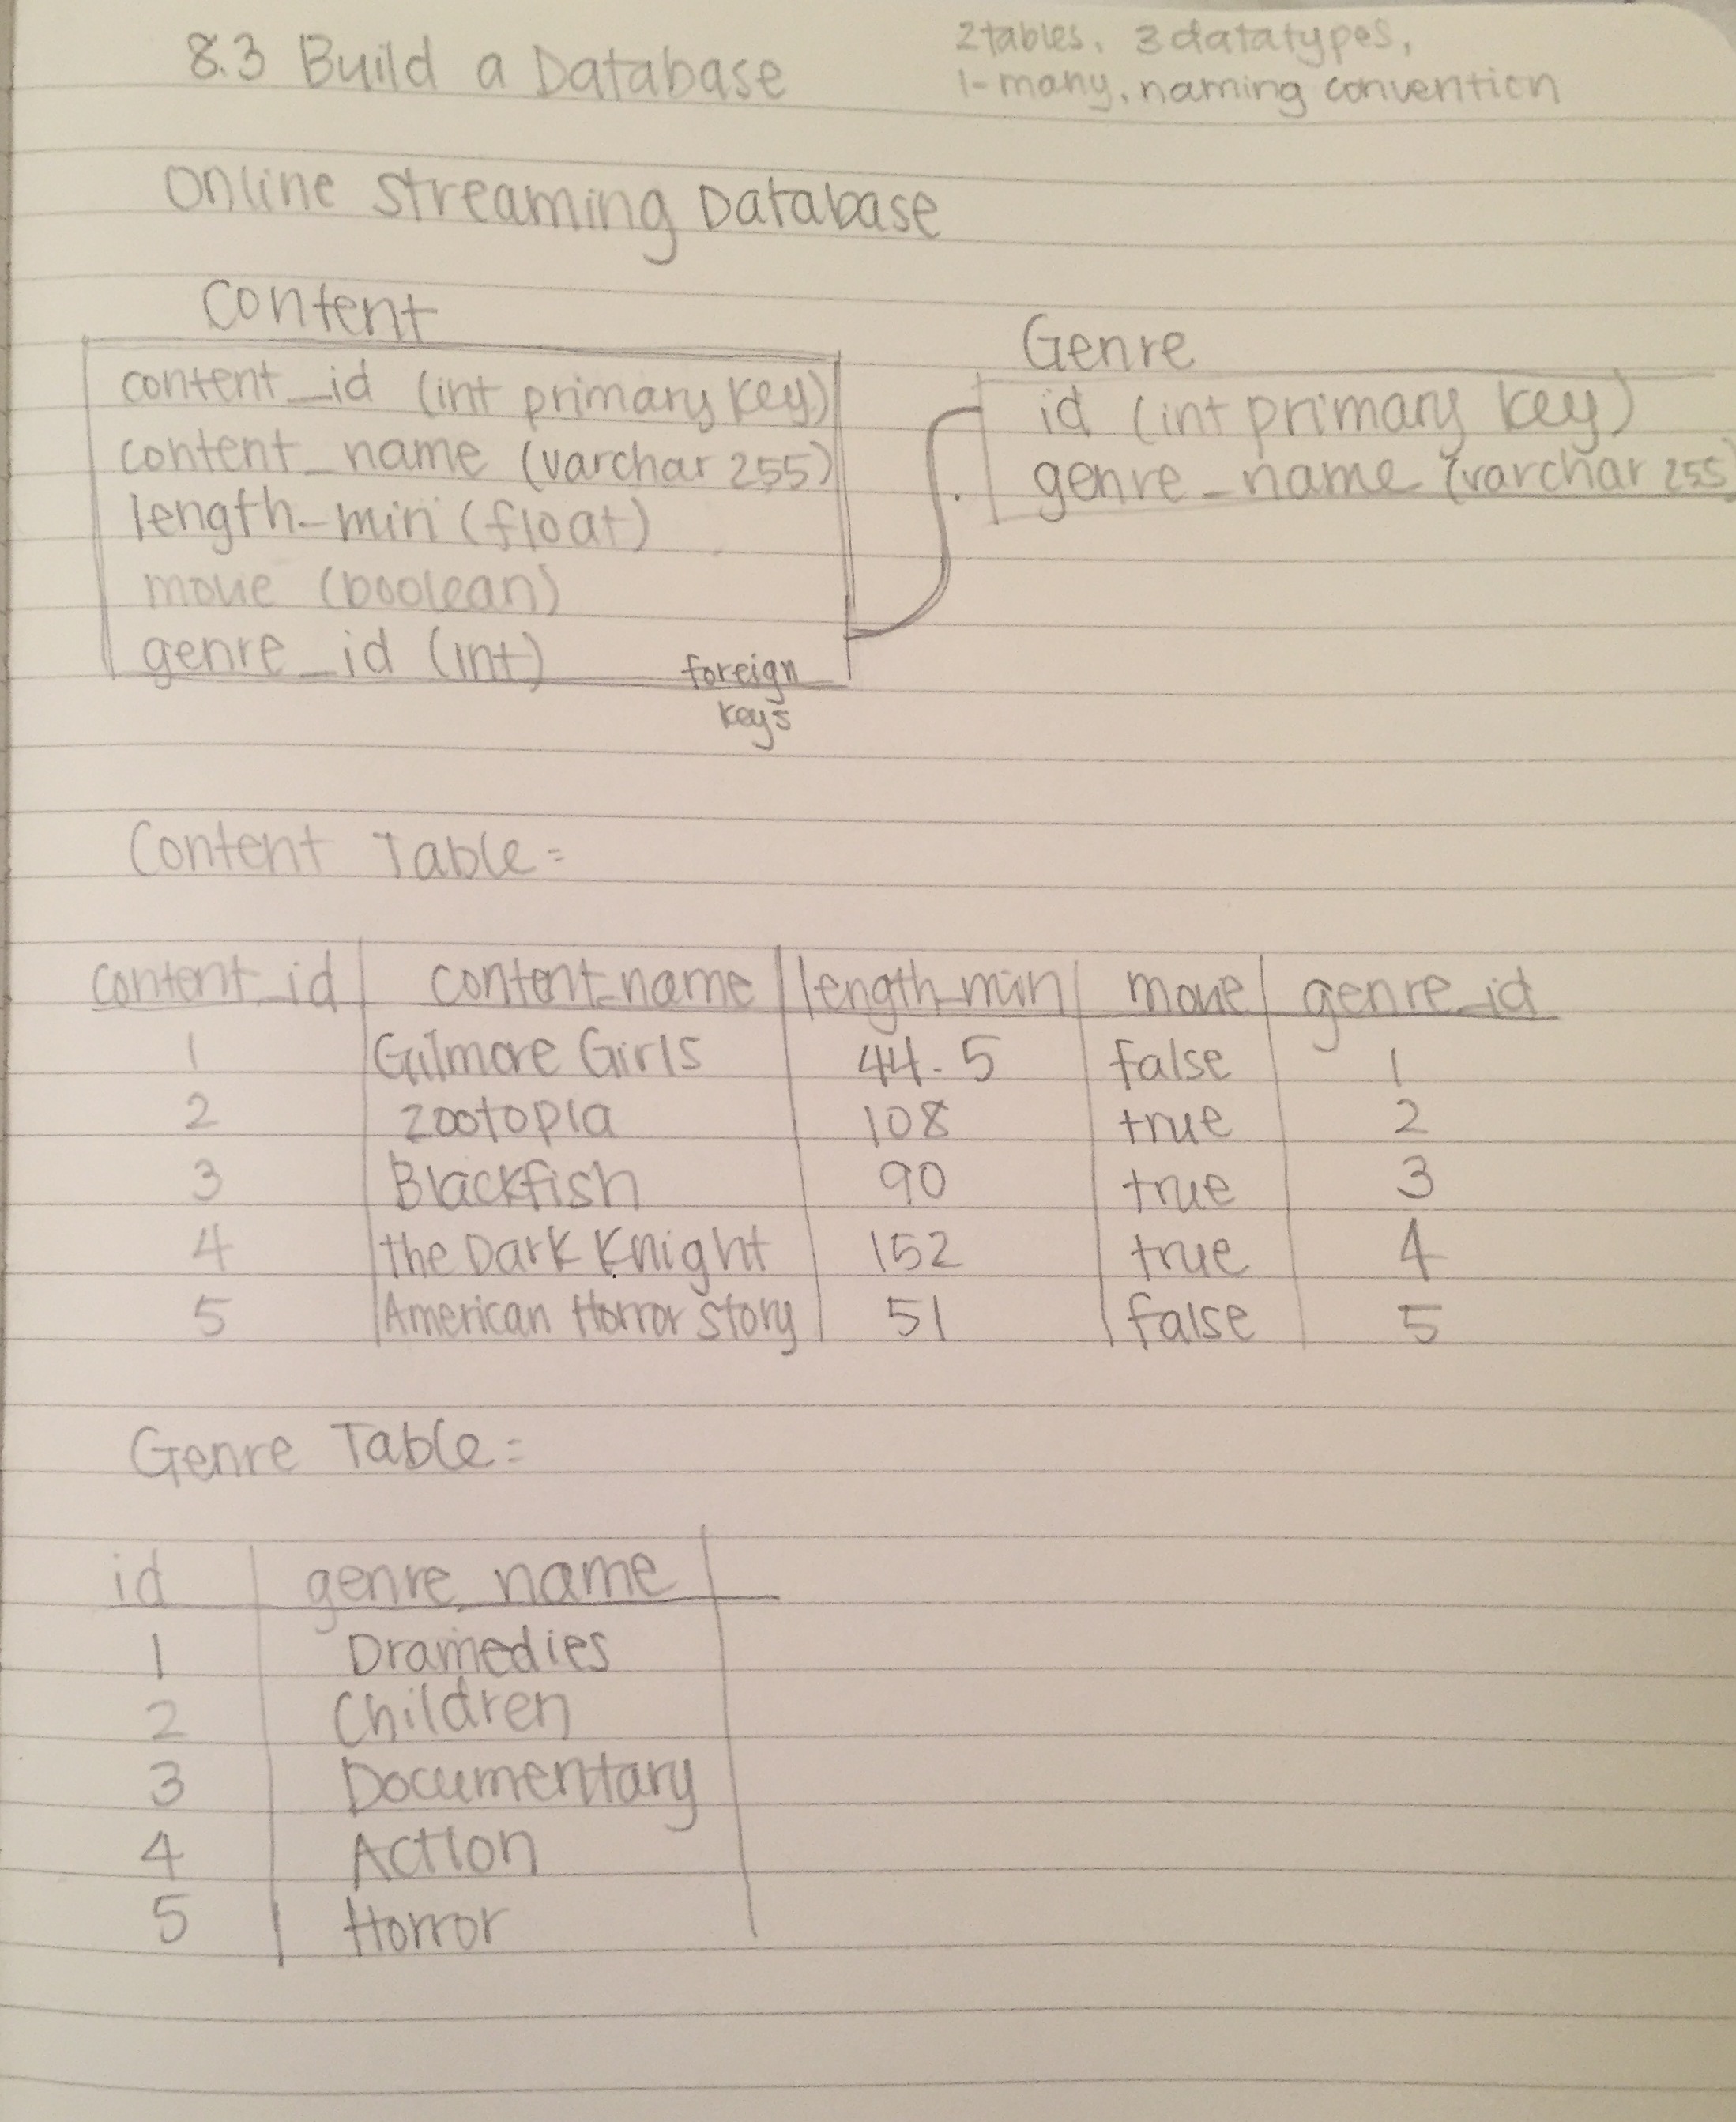 8.3 Build a Database
2 tables, 3 datatypes,
1-many, naming convention
Online Streaming Database
Content
content_id (int primary key)
content_name (varchar 255)
length_min (float)
movie (boolean)
genre_id (int)
foreign
keys
Genre
id (int primary key)
genre_name (varchar 255)
Content Table =
content_id content_name length_min movie genre_id
1 Gilmore Girls 44.5 false 1
2 Zootopia 108 true 2
3 Blackfish 90 true 3
4 the Dark Knight 152 true 4
5 American Horror Story 51 false 5
Genre Table =
id genre_name
1 Dramedies
2 Children
3 Documentary
4 Action
5 Horror